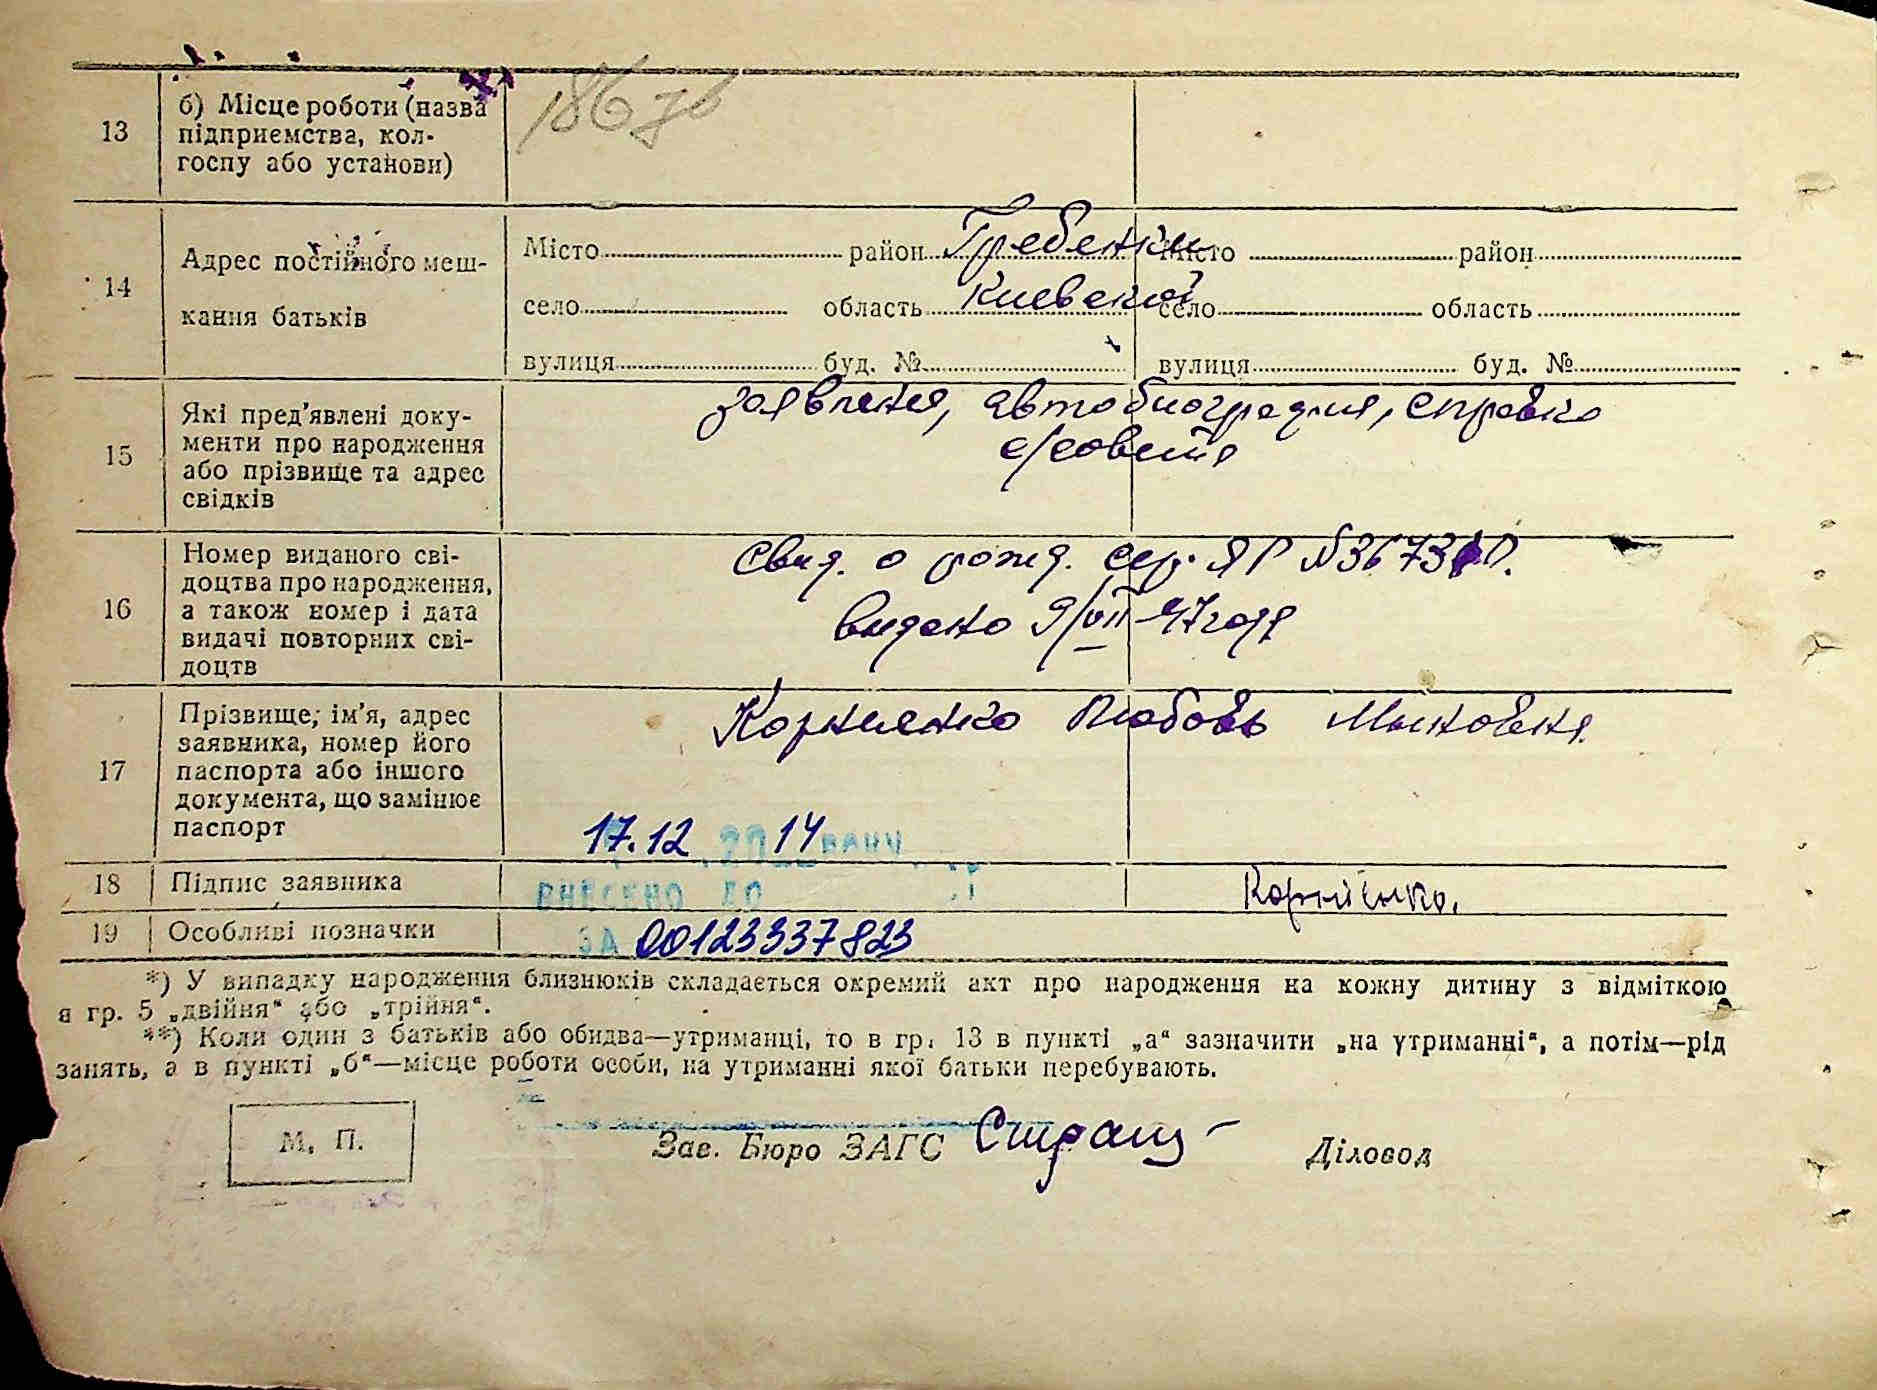 13
б) Місце роботи (назва
підприємства, кол-
госпу або установи)
186
14
Адрес постійного меш-
кання батьків
Місто район Гребенки
село область Киевской
вулиця буд. №
Місто район
село область
вулиця буд. №
15
Які пред'явлені доку-
менти про народження
або прізвище та адрес
свідків
заявления, автобиография, справка
с/совета
16
Номер виданого сві-
доцтва про народження,
а також номер і дата
видачі повторних сві-
доцтв
Свид. о рожд. сер. ЯР
видано 9/VII-47 года
17
Прізвище, ім'я, адрес
заявника, номер його
паспорта або іншого
документа, що замінює
паспорт
Корниенко Любовь
17.12 2014
18
Підпис заявника
ВНЕСЕНО ДО
Корнієнко.
19
Особливі позначки
ЗА 00123337823
*) У випадку народження близнюків складається окремий акт про народження на кожну дитину з відміткою
в гр. 5 „двійня“ або „трійня“.
**) Коли один з батьків або обидва—утриманці, то в гр. 13 в пункті „а“ зазначити „на утриманні“, а потім—рід
занять, а в пункті „б“—місце роботи особи, на утриманні якої батьки перебувають.
М. П.
Зав. Бюро ЗАГС
Діловод